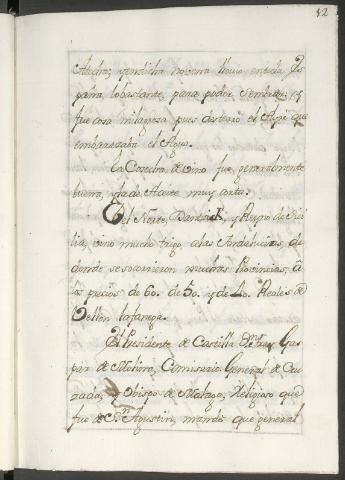 42
Madre; y en dicha novena llovio en toda Es
paña, lo bastante, para poder sembrar; y
fue cosa milagrosa pues desterró el Ayre que
embarazaba el Agua.
La Cosecha de vino fue generalmente
buena, y la de Aceite muy corta.
Del Norte, Dantzick, y Reyno de Sici
lia, vino mucho trigo a las Andalucias, de
donde se surtieron muchas Provincias, a
los precios de 60. de 50. y de 40. Reales de
Vellon la fanega.
El Presidente de Castilla Dn. Fray Gas
par de Molina, Comisario General de Cru
zada, y Obispo de Malaga, Religioso que
fue de Sn. Agustin, mandó que general